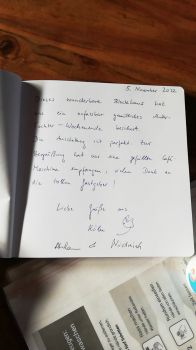 5. November 2022
Dieses wunderbare Blockhaus hat
uns ein unfassbar gemütliches Mutter-
Tochter-Wochenende beschert.
Die Ausstattung ist perfekt. Zur
Begrüßung hat uns eine gefüllte Kaffee
Maschine empfangen, vielen Dank an
die tollen Gastgeber!
Liebe Grüße aus
Köln
&